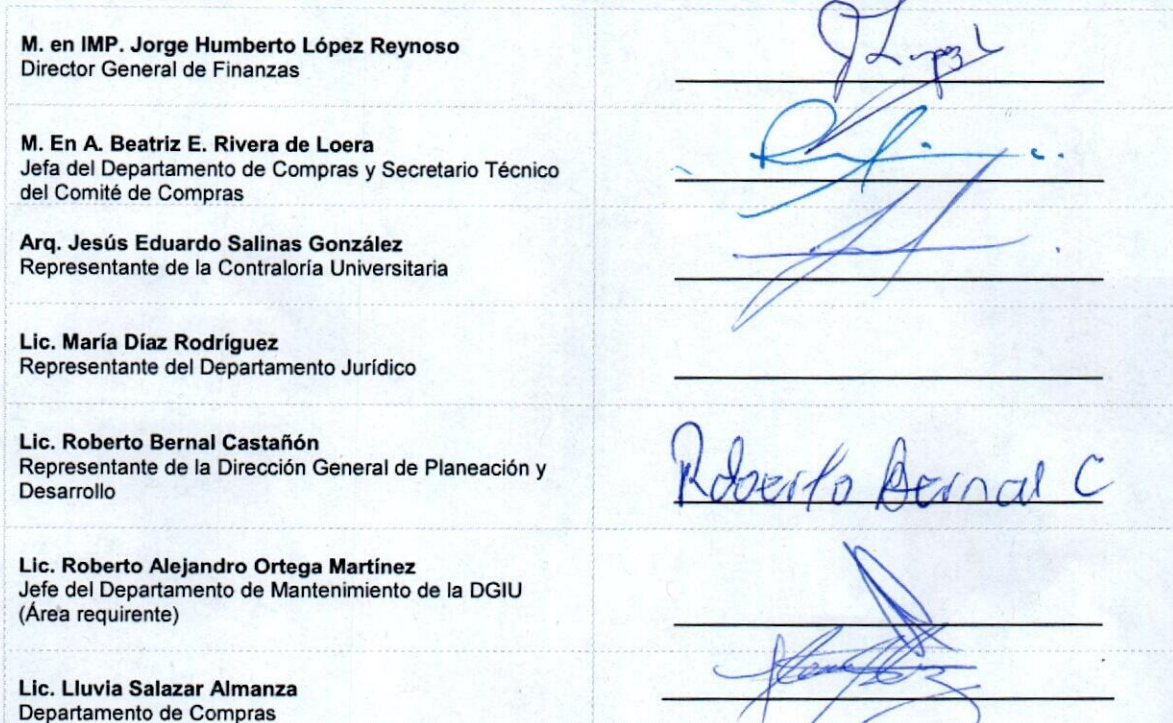 M. en IMP. Jorge Humberto López Reynoso
Director General de Finanzas
J Lopez L
M. En A. Beatriz E. Rivera de Loera
Jefa del Departamento de Compras y Secretario Técnico
del Comité de Compras
Arq. Jesús Eduardo Salinas González
Representante de la Contraloría Universitaria
Lic. María Díaz Rodríguez
Representante del Departamento Jurídico
Lic. Roberto Bernal Castañón
Representante de la Dirección General de Planeación y
Desarrollo
Roberto Bernal C
Lic. Roberto Alejandro Ortega Martínez
Jefe del Departamento de Mantenimiento de la DGIU
(Área requirente)
Lic. Lluvia Salazar Almanza
Departamento de Compras